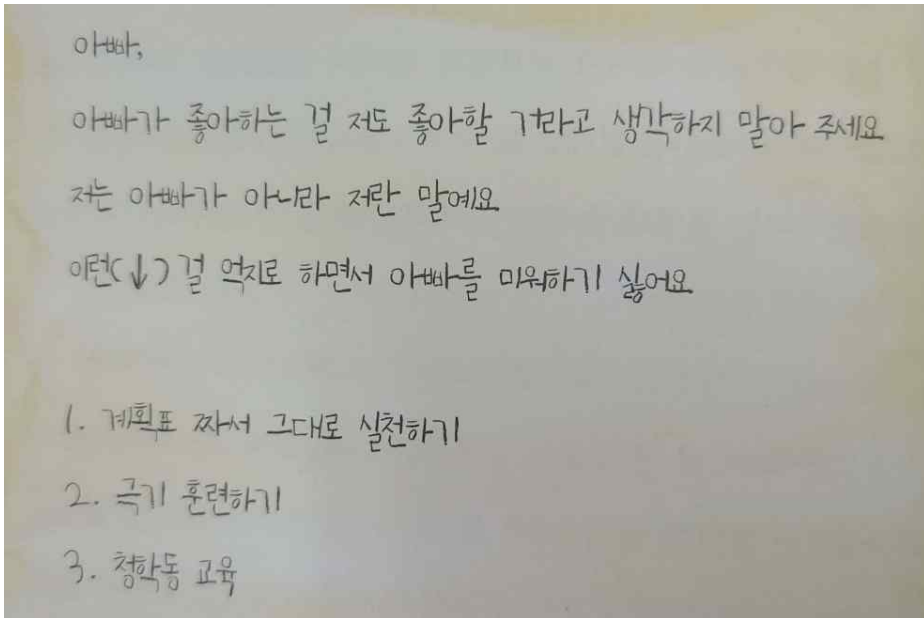 아빠,
아빠가 좋아하는 걸 저도 좋아할 거라고 생각하지 말아 주세요
저는 아빠가 아니라 저란 말예요
이런(↓) 걸 억지로 하면서 아빠를 미워하기 싫어요
1. 계획표 짜서 그대로 실천하기
2. 극기 훈련하기
3. 청학동 교육